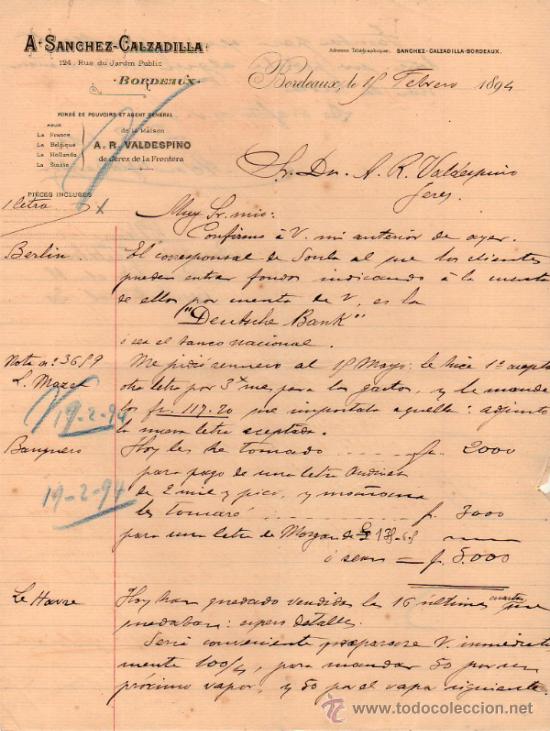 A. SANCHEZ-CALZADILLA
124, Rue du Jardin Public
BORDEAUX
Adresse Télégraphique: SANCHEZ-CALZADILLA-BORDEAUX.
Bordeaux, le 15 Febrero 1894
FONDÉ DE POUVOIRS ET AGENT GÉNÉRAL
POUR
La France
La Belgique
La Hollande
La Suisse
de la Maison
A. R. VALDESPINO
de Jerez de la Frontera
Sr. Dn. A. R. Valdespino
Jerez
PIÈCES INCLUSES
1 letra
Muy Sr. mio:
Confirmo á V. mi anterior de ayer.
Berlin
El corresponsal de al que los clientes
pueden entrar fondos indicando á la cuenta
de ellos por cuente de V, es la
"Deutsche Bank"
ó sea el banco nacional.
Nota nº 3659
L. Mazet
Me pidió al 15 Mayo; le hice 1ª
otra letra por 3 para los gastos, y le mande
los fr. 117.20 me importaba aquella: adjunto
la letra aceptada.
19-2-94
Banquero
Hoy les he tomado fr. 2000
para pago de una letra
de 2 mil y pico, y mañana
les tomaré fr. 3000
para una letra de Morgan de £
19-2-94
ó sean = fr. 5.000
Le Havre
Hoy han quedado vendidos los 16 últimos cuartos que
quedaban: espero detalles.
Será conveniente prepararse V. inmediata
mente 100/4, para mandar 50 por un
próximo vapor, y 50 por el vapor siguiente.
www.todocoleccion.net